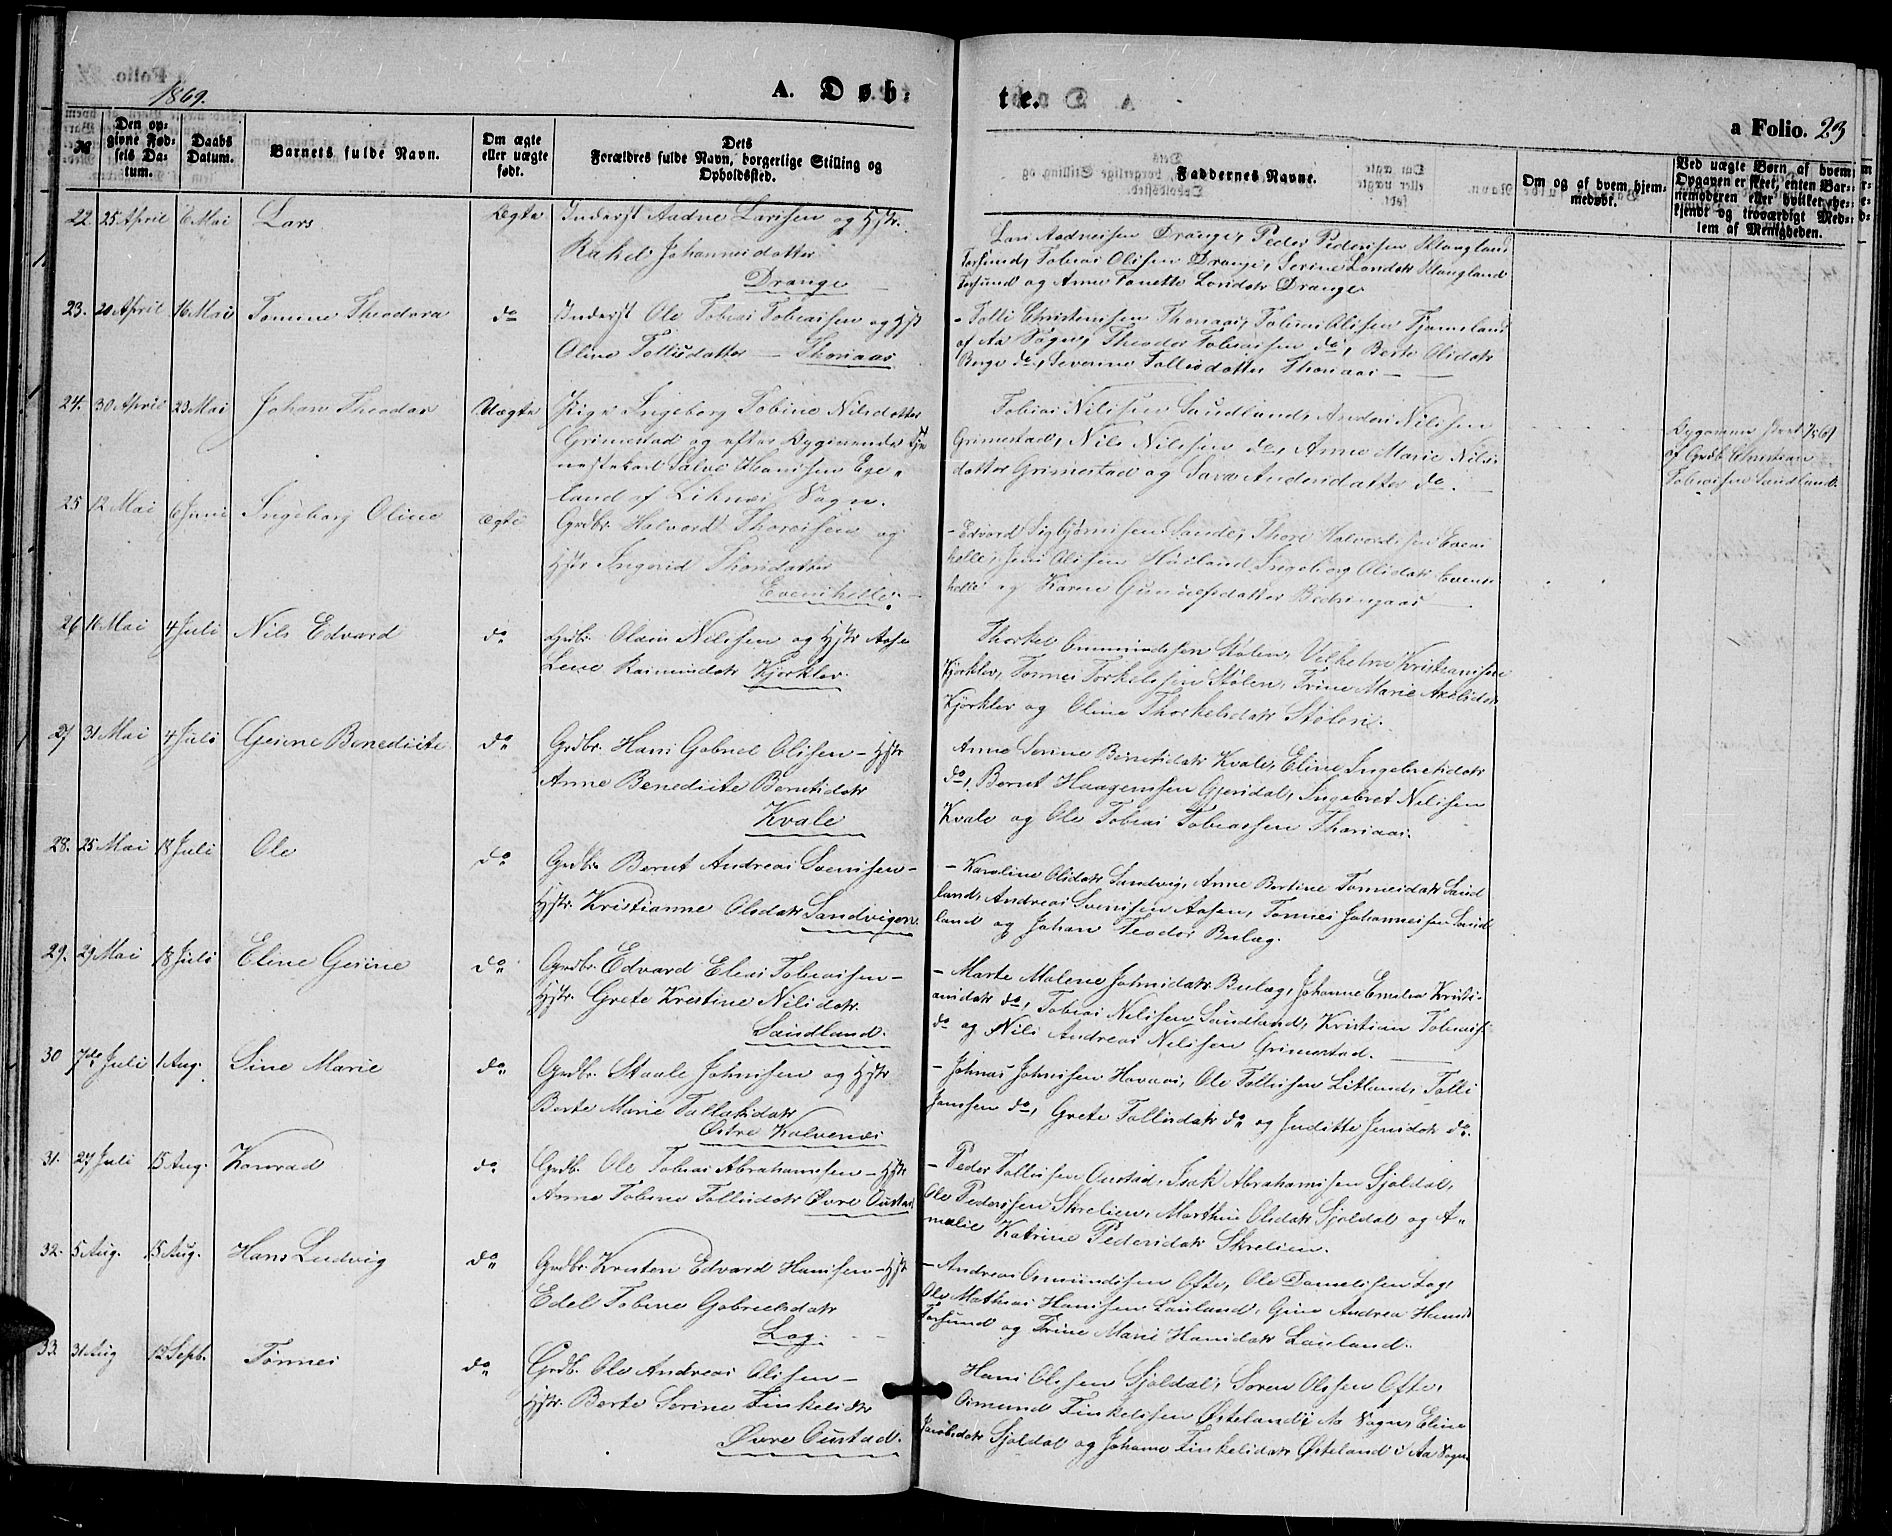 1869.
A. Døb-
te.
a Folio. 23
No
Den op-
givne Fød-
sels Da-
tum.
Daabs
Datum.
Barnets fulde Navn.
Om ægte
eller uægte
født.
Dets
Forældres fulde Navn, borgerlige Stilling og
Opholdssted.
Faddernes Navne.
Om og af hvem hjem-
medøbt.
Ved uægte Børn, af hvem
Opgaven er skeet, enten Bar-
nemoderen eller hvilket be-
kjendt og troværdigt Med-
lem af Menigheden.
22. 25 April 6 Mai Lars Ægte Inderst Aadne Larssen og Hstr.
Rahel Johannesdatter
Drange
Lars Aadnessen Drange, Peder Pederssen Klungland
Farsund, Tobias Olsen Drange, Serine Larsdatr Klungland
Farsund og Anne Tonette Larsdatr Drange
23. 20 April 16 Mai Tomine Theodora do Inderst Ole Tobias Tobiassen og Hst
Oline Tollisdatter — Thorsaas
- Tolli Christenssen Thorsaas, Tobias Olssen Tjomsland
af Aa Sogn, Theodor Tobiassen do, Berte Olsdatr
Berge do, Severine Tollisdatter Thorsaas —
24. 30 April 23 Mai Johan Theodor Uægte Pige Ingeborg Tobine Nilsdatter
Grimestad og efter Opgivende Tje
nestekarl Salve Hanssen Ege-
land af Liknes Sogn.
Tobias Nilssen Saudland, Anders Nilssen
Grimestad, Nils Nilssen do, Anne Marie Nils-
datter Grimestad og Sara Andersdatter do.
af Grdb. Christian
Tobiassen Saudland.
25 12 Mai 6 Juni Ingeborg Oline Ægte Grdbr. Halvord Thoressen og
Hstr Ingerid Thorsdatter
Evenshelle.
- Edvard Sigbjørnssen Sande, Thore Halvordssen Evens
helle, Jens Olssen Hauland, Ingeborg Olsdatr Evens
helle og Karen Gunuesdatter
26 16 Mai 4 Juli Nils Edvard do Grdbr. Olaus Nilssen og Hstr Aase
Lene Rasmusdatr Kjørklev.
Thorkel Ommundssen Stølen, Vilhelm Kristianssen
Kjørklev, Tønnes Torkelssen Stølen, Trine Marie Axelsdatr
Kjørklev og Oline Thorkelsdatr Stølen.
27 31 Mai 4 Juli Gesine Benedicte do Grdbr. Hans Gabriel Olssen — Hstr
Anne Benedicte Berntsdatr
Kvale
Anne Serine Berntsdatr Kvale, Eline Ingebretsdatr
do, Bernt Haagenssen Gjersdal, Ingebret Nilssen
Kvale og Ole Tobias Tobiassen Thorsaas.
28. 25 Mai 18 Juli Ole do Grdbr. Bernt Andreas Svenssen —
Hstr. Kristianne Olsdatr Sandvigen.
- Karoline Olsdatr Sandvig, Anne Bertine Tønnesdatr Saud
land, Andreas Svenssen Aasen, Tønnes Johannessen Saud
land og Johan Teodor Bulæg.
29. 29 Mai 18 Juli Eline Gesine do Grdbr. Edvard Elias Tobiassen —
Hstr. Grete Kristine Nilsdatr.
Saudland.
- Marte Malene Johnsdatr Bulæg, Johanne Emilie Kristi-
ansdatr do, Tobias Nilssen Saudland, Kristian Tobiass.
do og Nils Andreas Nilssen Grimestad.
30 7de Juli 1 Aug. Sine Marie do Grdbr. Staale Johnssen og Hstr
Berte Marie Tollaksdatr
Østre Kalvenes
- Johnas Johnssen Havaas, Ole Tollissen Litland, Tolli
Jenssen do, Grete Tollisdatr do og Juditte Jensdatr do.
31. 27 Juli 15 Aug. Konrad do Grdb. Ole Tobias Abrahamssen — Hstr
Anne Tobine Tollisdatr Øvre Oustad
- Peder Tollissen Oustad, Isak Abrahamssen Sjøldal,
Ole Pederssen Skrelien, Marthine Olsdatr Sjøldal og A-
malie Katrine Pedersdatr Skrelien.
32. 5 Aug. 15 Aug. Hans Ludvig do Grdbr. Kristen Edvard Hanssen — Hstr
Edel Tobine Gabrielsdatr
Log.
- Andreas Osmundssen Ofte, Ole Danielssen Log,
Ole Mathias Hanssen Lauland, Gine Andrea Hansd
Farsund og Trine Marie Hansdatr Lauland.
33. 31 Aug 12 Septb. Tønnes do Grdb. Ole Andreas Olssen —
Hstr. Berte Serine Finkelsdtr
Øvre Oustad.
Hans Olssen Sjøldal, Søren Olssen Ofte,
Osmund Finkelssen Østeland i Aa Sogn, Eline
Jacobsdatr Sjøldal og Johanne Finkelsdatr Østeland i Aa Sogn